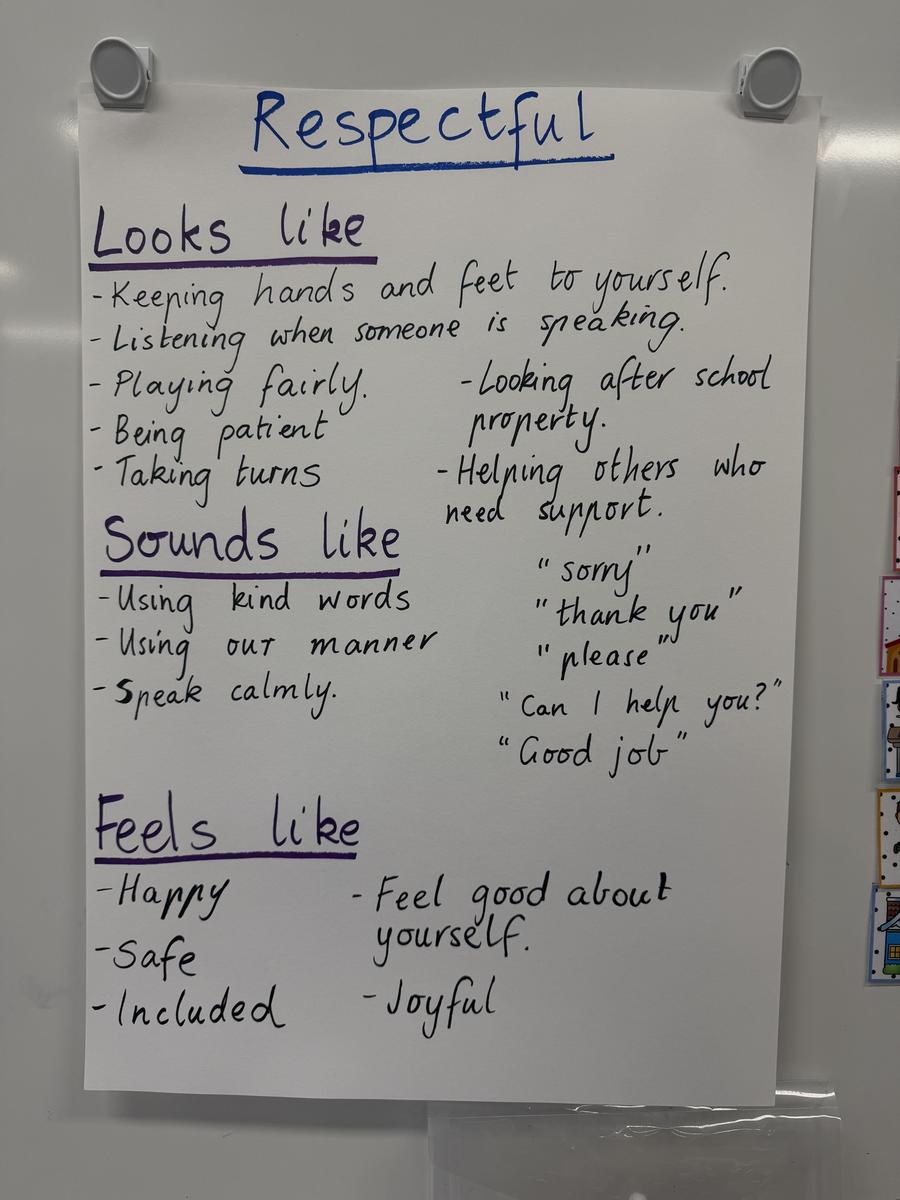 Respectful
Looks like
- Keeping hands and feet to yourself.
- Listening when someone is speaking.
- Playing fairly.
- Being patient
- Taking turns
- Looking after school
property.
- Helping others who
need support.
Sounds like
- Using kind words
- Using our manner
- Speak calmly.
"sorry"
"thank you"
"please"
"Can I help you?"
"Good job"
Feels like
- Happy
- Safe
- Included
- Feel good about
yourself.
- Joyful